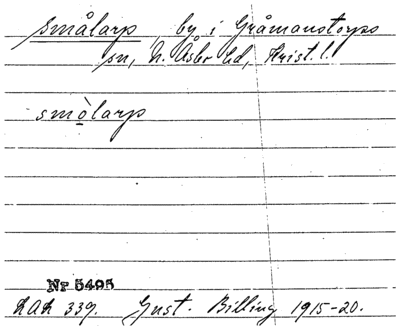 Smålarp, by i Gråmanstorps
sn, N. Åsbo hd, Krist. l.
smòlarp
Nr 5495
LAL 339. Gust. Billing 1915-20.